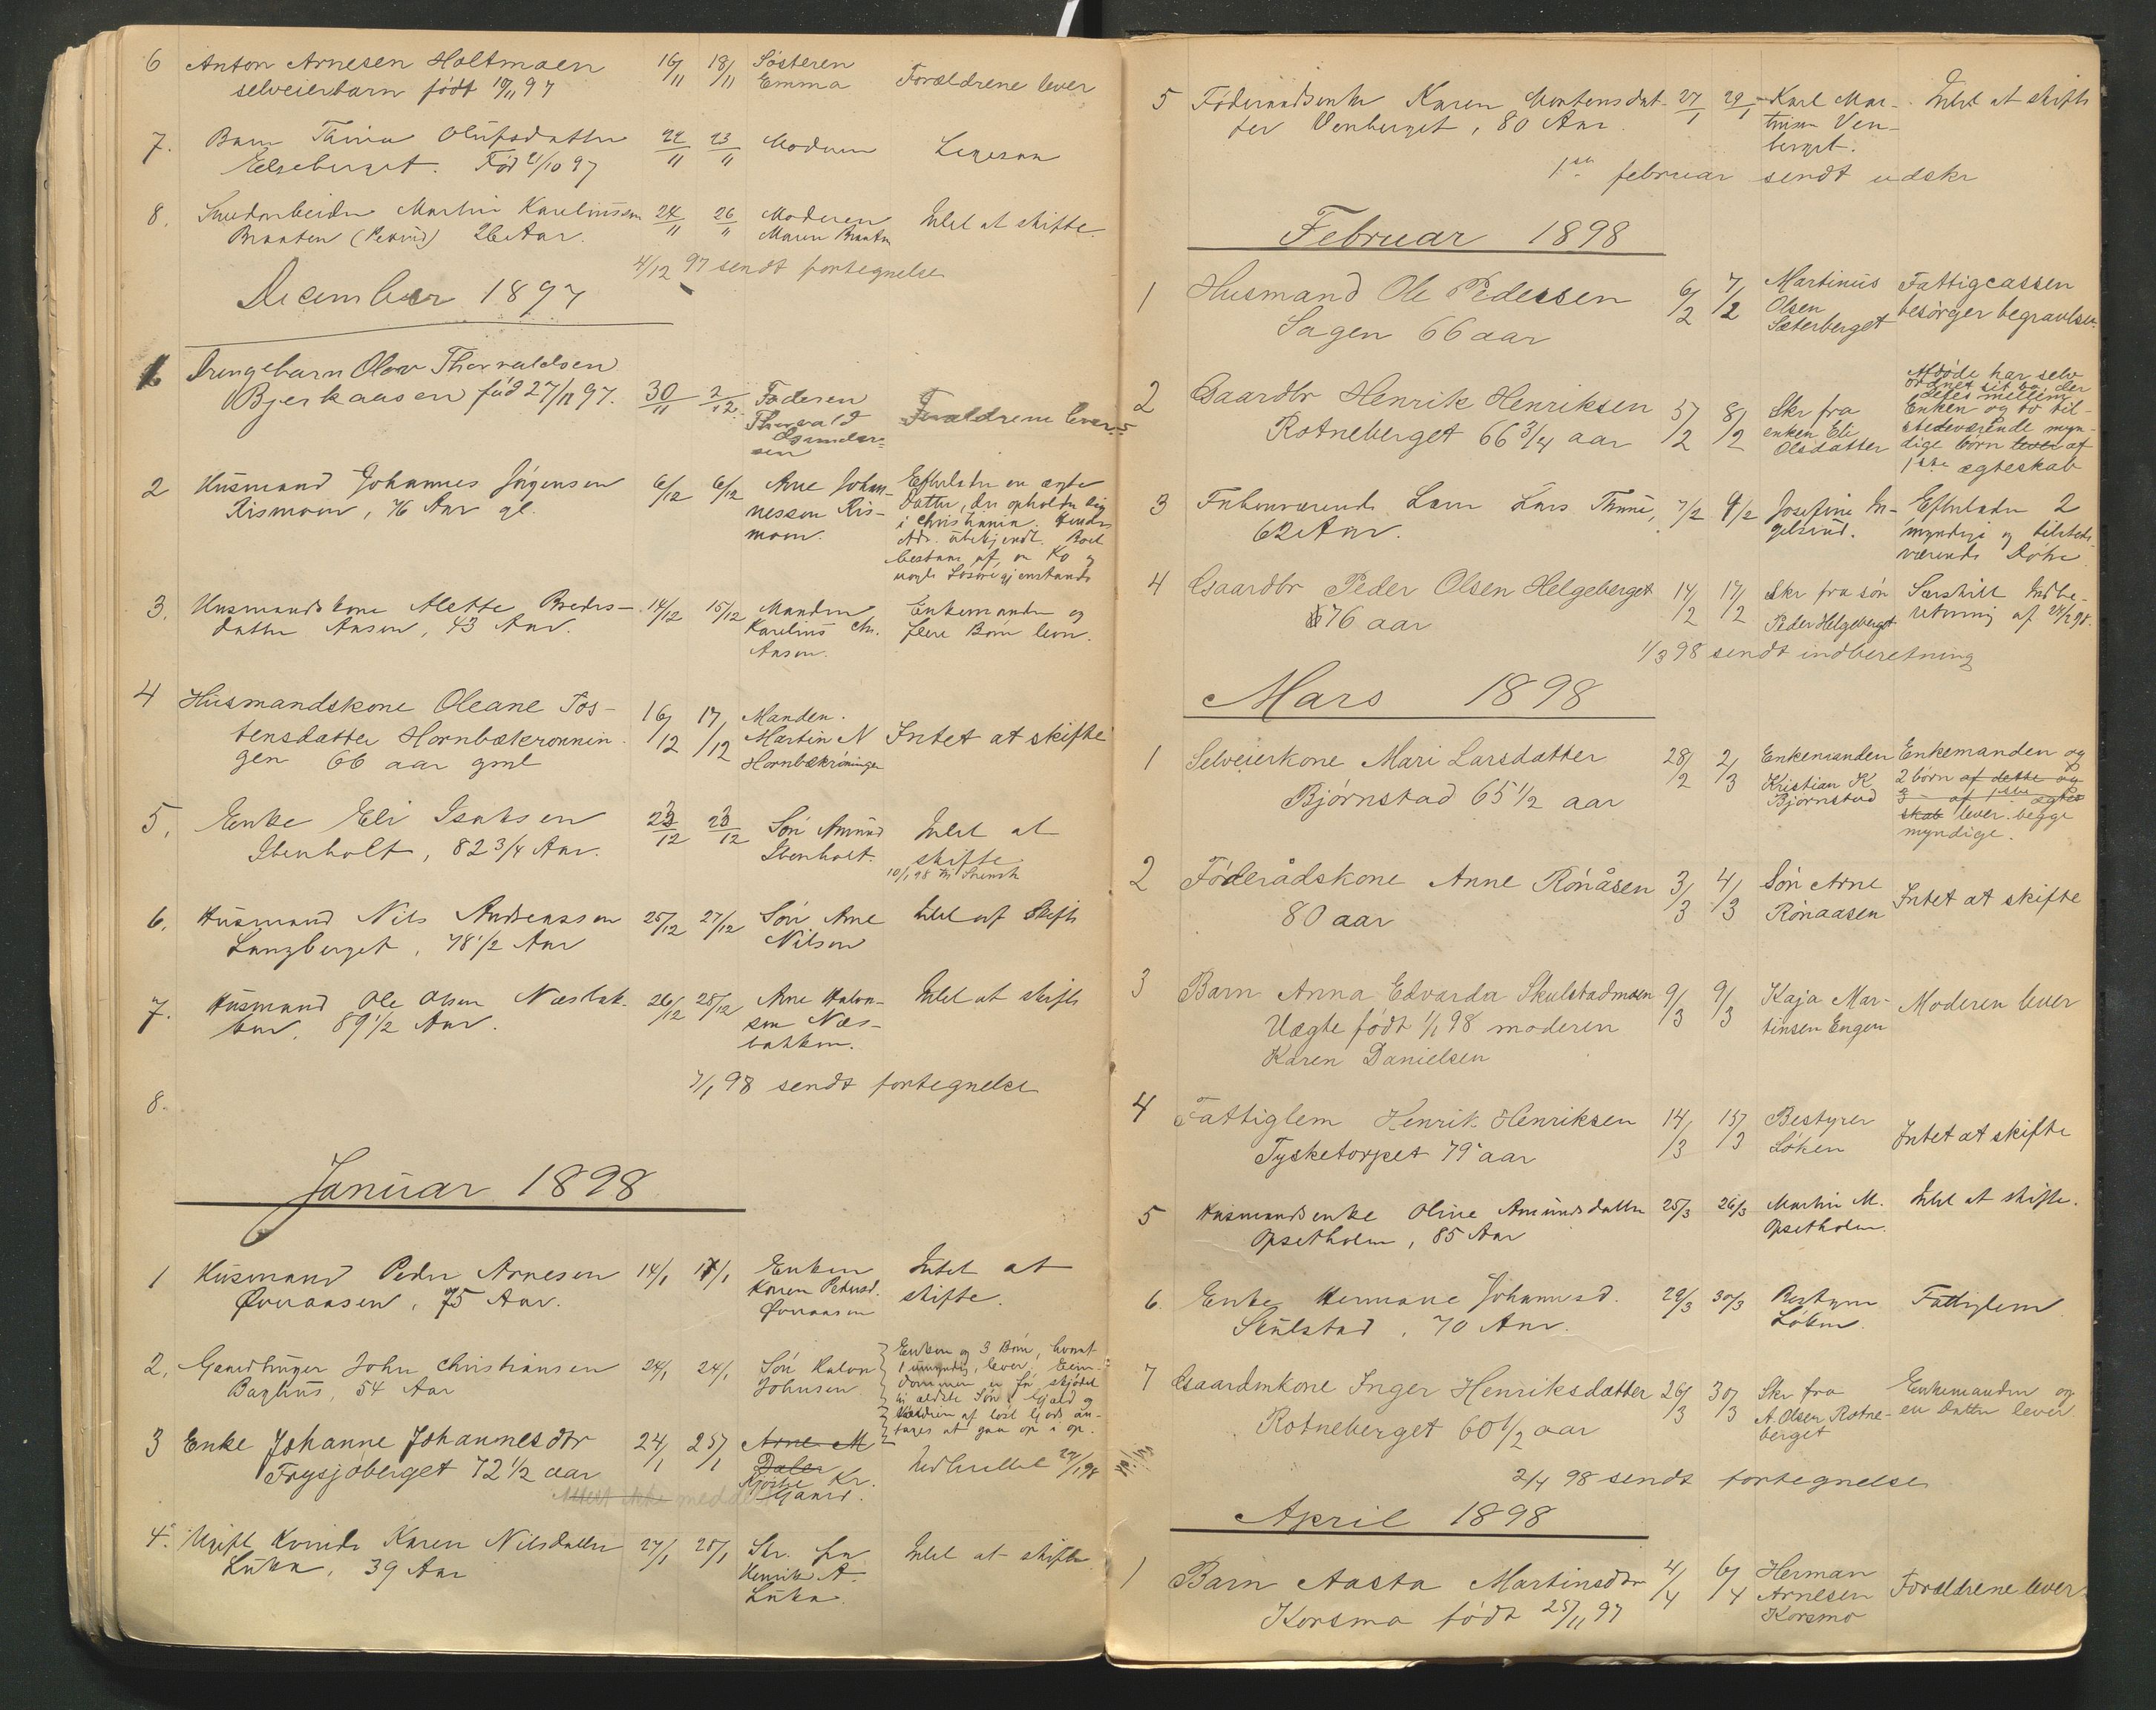 6 Anton Arnesen Holtmoen 16/11 18/11 Søsteren Forældrene lever
selveierbarn født 10/11 97 Emma
7. Barn Thina Olufsdatter 22/11 23/11 Modum Legesaa
Eelseberget. Fød 21/10 97
8. Martin Karelinssen 24/11 26/11 Moderen Intet at skifte.
Braaten 26 Aar. Maren Braaten
4/12 97 sendt fortegnelse
December 1897
1 Drengebarn Olav Thorvaldsen
Bjerkaasen fød 27/11 97. 30/11 2/12 Faderen Forældrene lever
Thorvald
Gunder-
sen
2 Husmand Johannes Jörgensen 6/12 6/12 Arne Johan- Efterlader en ægte
Kismoen, 76 Aar gl. nessen Kis- Datter, der opholder sig
moen. i Christiania. Hendes
Adr. ubekjendt. Boet
bestaar af en Ko og
nogle Løsøregjenstande
3. Husmandskone Alette Peders- 14/12 15/12 Manden Enkemanden og
datter Aasen, 43 Aar. Karelius Chr. flere Børn lever.
Aasen.
4 Husmandskone Oleane Tos- 16/12 17/12 Manden.
tensdatter Hornbækrønnin Martin N Intet at skifte
gen 66 aar gml Hornbækröningen
5. Enke Eli Isaksen 23/12 23/12 Søn Amund Intet at
Ibenholt, 82 3/4 Aar. Ibenholt. skifte
10/1 98
6. Husmand Nils Andreassen 25/12 27/12 Søn Arne Intet at skifte
Langberget, 78 1/2 Aar Nilsen
7. Husmand Ole Olsen Næsbak- 26/12 28/12 Arne Halvor- Intet at skifte
ken, 89 1/2 Aar. sen Næs-
bakken.
7/1 98 sendt fortegnelse
8.
Januar 1898
1 Husmand Peder Arnesen 14/1 17/1 Enken Intet at
Øvraasen, 75 Aar. Karen Pedersd. skifte.
Øvraasen
2. Gaardbruger John Christiansen 24/1 24/1 Søn Halvor Enken og 3 Børn, hvoraf
Baghus, 54 Aar Johnsen 1 umyndig, lever. Eien-
dommen er frá skjødet
til ældste Søn. Gjæld og
Værdien af løst Gods an-
tages at gaa op i op.
3 Enke Johanne Johannesdtr 24/1 25/1 Arne M
Frysjöberget 72 1/2 aar Daler Indberettet 27/1 98
Kr.
Gaard.
4. Ugift Kvinde Karen Nilsdatter 27/1 28/1 Skr. fra Intet at skifte
Luka, 39 Aar Henrik A.
Luka.
5 Føderaadsenke Karen Mortensdat- 27/1 29/1 Karl Mar- Intet at skifte
ter Venberget, 80 Aar. tinsen Ven-
berget.
1ste februar sendt udskr
Februar 1898
1 Husmand Ole Pedersen 6/2 7/2 Martinus Fattigcassen
Sagen 66 aar Olsen besørger begravelsen.
Sæterberget
2 Gaardbr Henrik Henriksen 5/2 8/2 Skr fra Afdøde har selv
Rotneberget 66 3/4 aar enken Eli ordnet sit bo, der
Olsdatter deles mellem
Enken og to til-
stedeværende myn-
dige børn lever af
1ste ægteskab
3 Forhenværende Lars Thune, 7/2 9/2 Josefine In- Efterlader 2
62 Aar. gelsrud. myndige og tilstede-
værende Døtre
4 Gaardbr Peder Olsen Helgeberget 14/2 17/2 Skr fra søn Særskilt Indbe-
76 aar Peder Helgeberget retning af 24/2 98.
1/3 98 sendt indberetning
Mars 1898
1 Selveierkone Mari Larsdatter 28/2 2/3 Enkemanden Enkemanden og
Bjørnstad 65 1/2 aar Kristian K. 2 børn af dette og
Bjørnstad 3 - af 1ste ægte
skab lever. begge
myndige.
2 Föderådskone Anne Rönåsen 3/3 4/3 Søn Arne Intet at skifte
80 aar Rönaasen
3 Barn Anna Edvarda Skulstadmoen 9/3 9/3 Kaja Mar- Moderen lever
Uægte født 1/1 98 moderen tinsen Engen
Karen Danielsen
4 Fattiglem Henrik Henriksen 14/3 15/3 Bestyrer Intet at skifte
Tysketorpet 79 aar Löken
5 Husmandsenke Oline Amundsdatter 25/3 26/3 Martin M. Intet at skifte.
Opsetholm, 85 Aar Opsetholm.
6. Enke Hermane Johannesd. 29/3 30/3 Bestyrer Fattiglem
Skulstad, 70 Aar. Løken.
7 Gaardmkone Inger Henriksdatter 26/3 30/3 Skr fra Enkemanden og
Rotneberget 60 1/2 aar A. Olsen Rotne- en Datter lever
berget
2/4 98 sendt fortegnelse
April 1898
1 Barn Aasta Martinsdtr 4/4 6/4 Herman Forældrene lever
Korsmo født 25/11 97 Arnesen
Korsmo